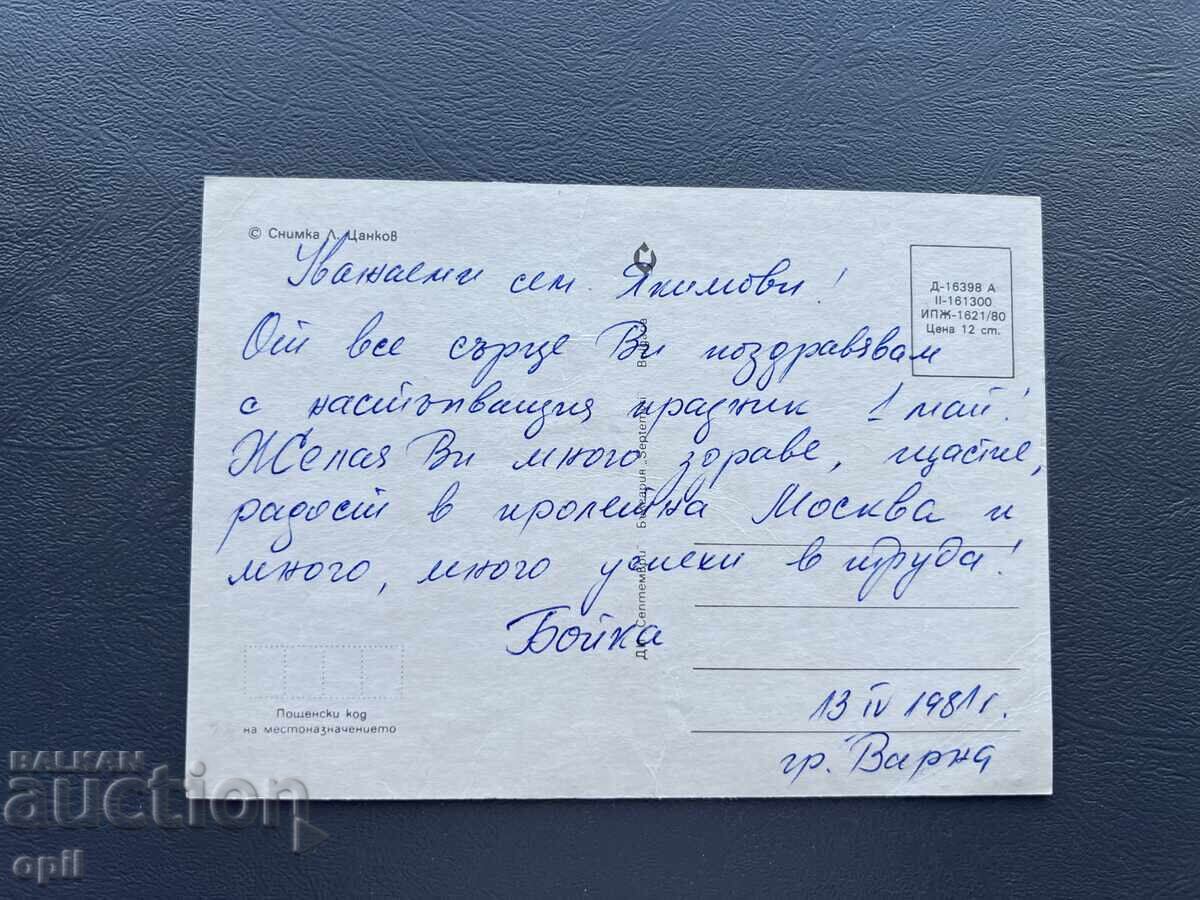 © Снимка Л. Цанков
Уважаеми сем. Якимови!
От все сърце Ви поздравявам
с настъпващия празник 1 май!
Желая Ви много здраве, щастие,
радост в пролетна Москва и
много, много успехи в труда!
Бойка
13 IV 1981 г.
гр. Варна
Д-16398 А
II-161300
ИПЖ-1621/80
Цена 12 ст.
Септември България „Septemvri"
Пощенски код
на местоназначението
BALKAN
auction
opil